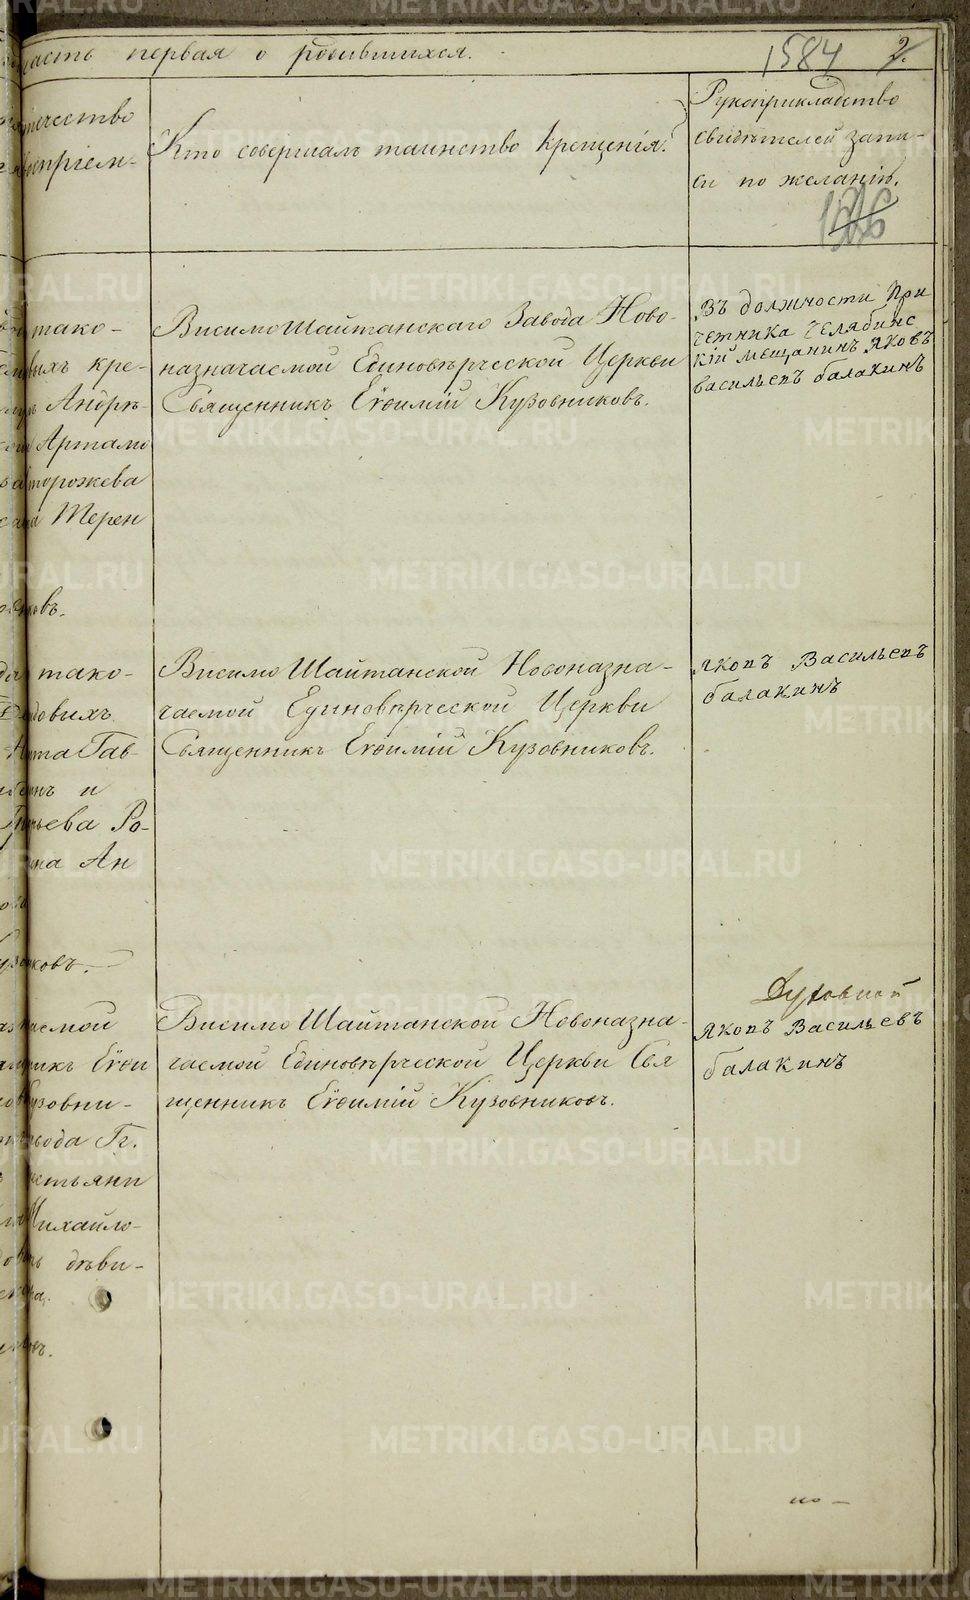 часть первая о родившихся.
1584 2.
Кто совершалъ таинство крещенія?
Рукоприкладство
свидѣтелей запи-
си по желанію.
тако-
кре-
Андрѣ-
Артамо
сторожева
Терен
ковъ.
ВисимоШайтанскаго Завода Ново-
назначаемой Единовѣрческой Церкви
Священникъ Евѳимій Кузовниковъ.
Въ должности При
четника челябинс
кій мѣщанинъ Яковъ
васильевъ балакинъ
тако-
довихъ
Гав-
и
Ро-
Ан
ковъ.
Висимо Шайтанской Новоназна-
чаемой Единовѣрческой Церкви
Священникъ Евѳимій Кузовниковъ.
Яковъ Васильевъ
балакинъ
Евѳи
Кузовни-
завода Гг.
Михайло-
дѣви-
Висимо Шайтанской Новоназна-
чаемой Единовѣрческой Церкви Свя
щенникъ Евѳимій Кузовниковъ.
Духовной
Яковъ Васильевъ
балакинъ
по-
METRIKI.GASO-URAL.RU